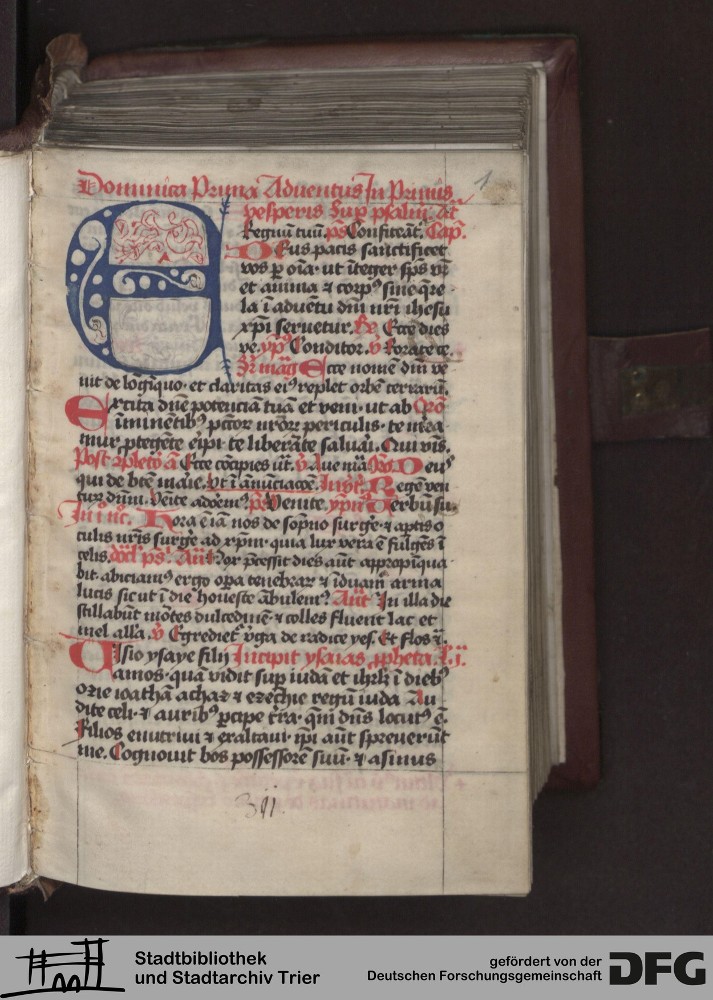 Dominica Prima Adventus In Primis
1
vesperis Sup psalm. añ
Regnũ tuũ. ps Confiteãt. Cap.
Eus pacis sanctificet
vos p oĩa. ut ĩteger sps vr̃
et anima ⁊ corpꝰ sine q̃re
la ĩ advẽtu dnĩ nrĩ ihesu
xp̃i servetur. Ecce dies
ve. ypꝰ Conditor. v Rorate ce.
Sr mag̃ Ecce nomẽ dnĩ ve
nit de lõgiquo. et claritas eiꝰ replet orbẽ terrarũ.
Excita dñe potenciã tuã et veni. ut ab
ĩminẽtibꝰ pctõr nrõr periculis. te mea
mur ptegẽte eripi. te liberãte salvari. Qui viv̄s.
Post 9pletõ a Ecce cõcipies ut̃. v Ave mã Deꝰ
qui de btẽ marie. Ut ĩ ãnũciacõe. Regẽ ven
turũ dnũm. Veite adõemꝰ. ps Venite. ypnꝰ Verbũ su.
In ĩ nc̃. Hora ẽ iã nos de sõpno surge. ⁊ aptis o
culis nrĩs surge ad xpm̃. quia lux vera ẽ fulgẽs ĩ
celis. Añt Nox pcessit dies aũt appropĩqua
bit. abiciamꝰ ergo opa tenebrar ⁊ ĩduam arma
lucis sic ut ĩ die honeste ãbulemꝰ. Añt In illa die
stillabũt mõtes dulcedinẽ ⁊ colles fluent lac et
mel alla. v Egrediet vga de radice yes. Et flos ⁊.
Visio ysaye filij Incipit ysaias ppheta. c. j.
amos. quã vidit sup iudã et ihrlm ĩ diebꝰ
ozie ioathã achaz ⁊ ezechie regũ iuda Au
dite celi. ⁊ auribꝰ pcipe tr̃a. qm̃ dñs locutꝰ ẽ.
Filios enutrivi ⁊ exaltavi. ip̃i aũt spreverũt
me. Cognovit bos possessorẽ suũ. ⁊ asinus
Stadtbibliothek
und Stadtarchiv Trier
gefördert von der
Deutschen Forschungsgemeinschaft
DFG